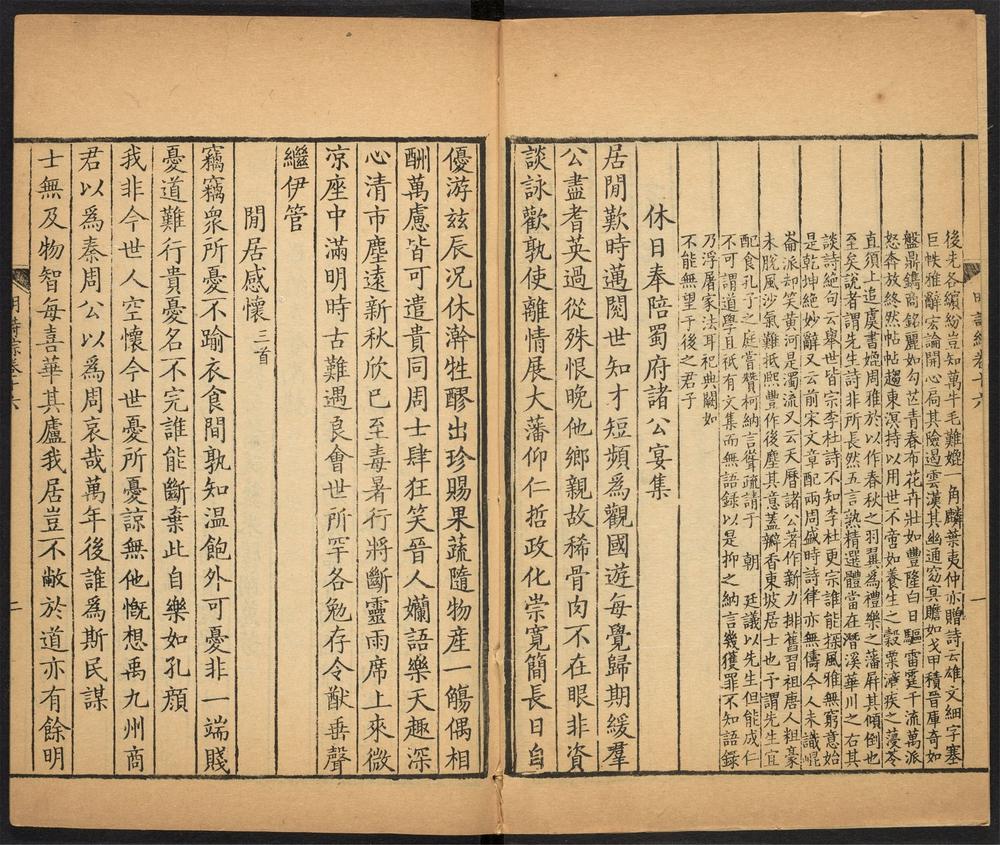 明詩綜卷十六
一
後來各繽紛豈知萬牛毛難媲一角麟葉夷仲亦贈詩云雄文細字塞
巨帙雅辭宏論開心扃其險過雲漢其幽通窈冥贍如戈甲積晉庫奇如
盤鼎鐫商銘麗如勾芒青春布花卉壯如豐隆白日驅雷霆千流萬派
怒奔放終然帖帖趨東溟持以用世不啻如養生之穀粟濟疾之薓苓
直須上追虞書媲周雅於以作春秋之羽翼為禮樂之藩屏其傾倒也
至矣說者謂先生詩非所長然五言熟精選體當在潛溪華川之右其
談詩絶句云舉世皆宗李杜詩不知李杜更宗誰能探風雅無窮意始
是乾坤絶妙辭又云前宋文章配兩周盛時詩律亦無儔今人未識崐
崙派却笑黃河是濁流又云天曆諸公著作新力排舊習祖唐人粗豪
未脫風沙氣難抵熙豐作後塵其意蓋瓣香東坡居士也予謂先生宜
配食孔子之庭嘗贊柯納言聳疏請于　朝　廷議以先生但能成仁
不可謂道學且祇有文集而無語錄以是抑之納言幾獲罪不知語錄
乃浮屠家法耳祀典闕如
不能無望于後之君子
休日奉陪蜀府諸公宴集
居閒歎時邁閱世知才短頻為觀國遊每覺歸期緩羣
公盡耆英過從殊恨晚他鄉親故稀骨肉不在眼非資
談詠歡孰使離情展大藩仰仁哲政化崇寛簡長日自
優游兹辰况休澣牲醪出珍賜果蔬隨物産一觴偶相
酬萬慮皆可遣貴同周士肆狂笑晉人嬾語樂天趣深
心清市塵遠新秋欣已至毒暑行將斷靈雨席上來微
凉座中滿明時古難遇良會世所罕各勉存令猷垂聲
繼伊管
閒居感懷三首
竊竊衆所憂不踰衣食間孰知温飽外可憂非一端賤
憂道難行貴憂名不完誰能斷棄此自樂如孔顔
我非今世人空懷今世憂所憂諒無他慨想禹九州商
君以爲秦周公以爲周哀哉萬年後誰為斯民謀
士無及物智每喜華其廬我居豈不敝於道亦有餘明
明詩綜卷十六
二